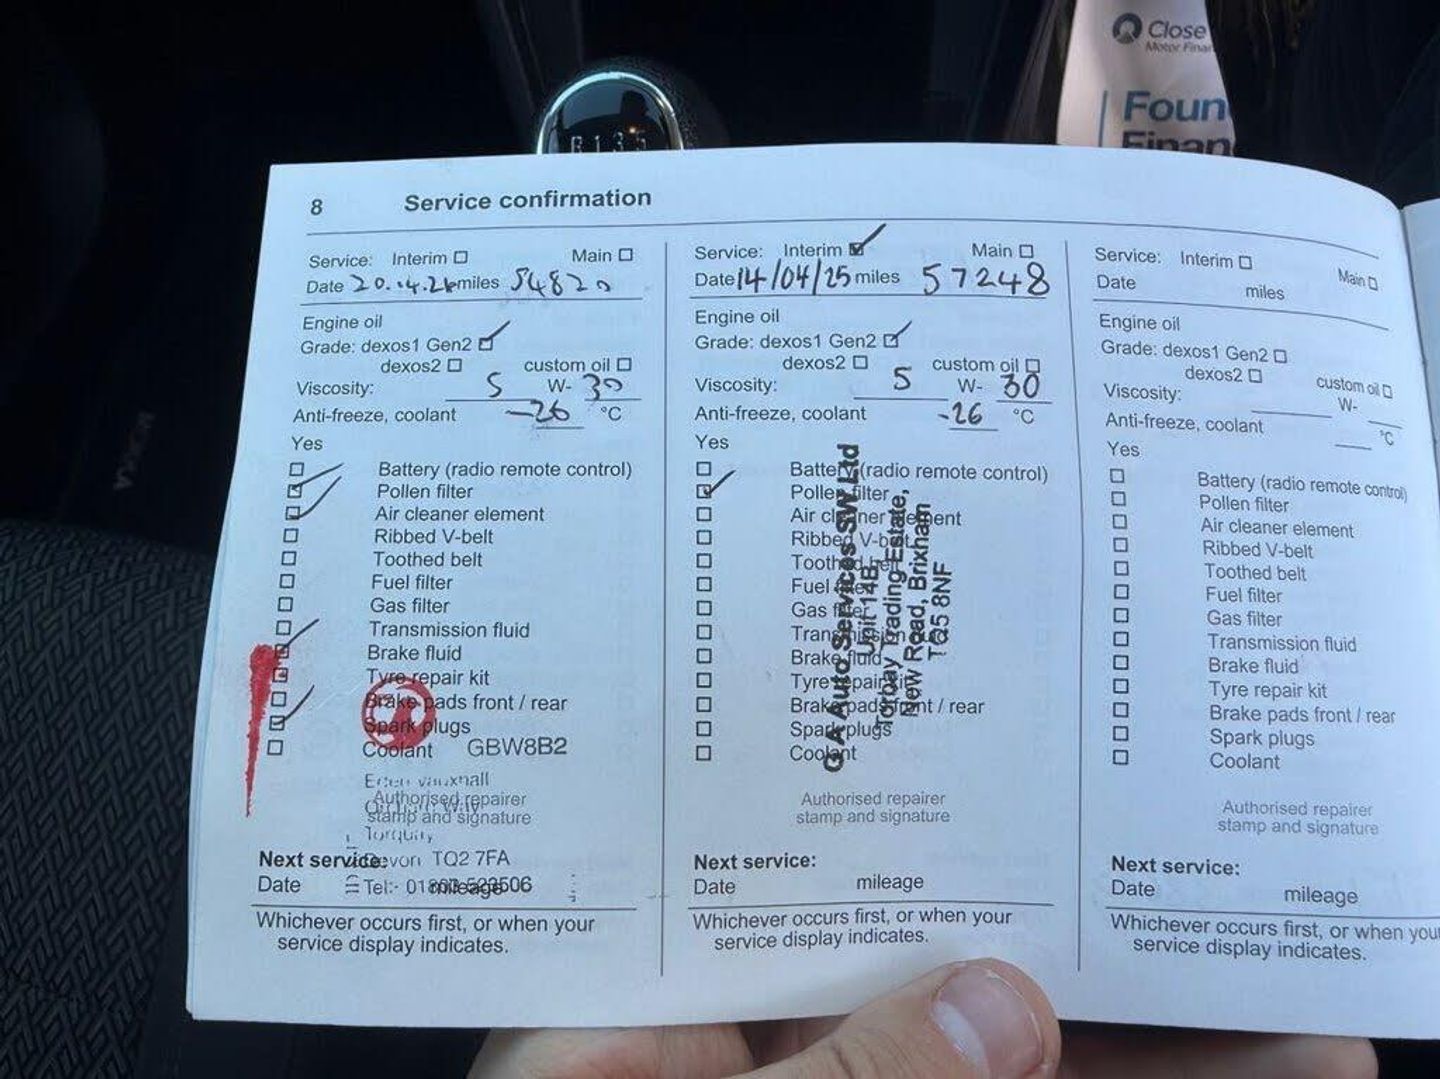 Close
Motor Finan
Foun
Finan
8 Service confirmation
Service: Interim ☐ Main ☐
Date 20.4.24 miles 54820
Engine oil
Grade: dexos1 Gen2 ☑
dexos2 ☐ custom oil ☐
Viscosity: 5 W- 30
Anti-freeze, coolant -26 °C
Yes
Battery (radio remote control)
Pollen filter
Air cleaner element
Ribbed V-belt
Toothed belt
Fuel filter
Gas filter
Transmission fluid
Brake fluid
Tyre repair kit
Brake pads front / rear
Spark plugs
Coolant GBW8B2
Vauxhall
Authorised repairer
stamp and signature
Torquay
Next service: Devon TQ2 7FA
Date Tel:- mileage
Whichever occurs first, or when your
service display indicates.
Service: Interim ☑ Main ☐
Date 14/04/25 miles 57248
Engine oil
Grade: dexos1 Gen2 ☑
dexos2 ☐ custom oil ☐
Viscosity: 5 W- 30
Anti-freeze, coolant -26 °C
Yes
Battery (radio remote control)
Pollen filter
Air cleaner element
Ribbed V-belt
Toothed belt
Fuel filter
Gas filter
Transmission fluid
Brake fluid
Tyre repair kit
Brake pads front / rear
Spark plugs
Coolant
G A Auto Services SW Ltd
Unit 14B
Torbay Trading Estate,
New Road, Brixham
TQ5 8NF
Authorised repairer
stamp and signature
Next service:
Date mileage
Whichever occurs first, or when your
service display indicates.
Service: Interim ☐ Main ☐
Date miles
Engine oil
Grade: dexos1 Gen2 ☐
dexos2 ☐ custom oil ☐
Viscosity: W-
Anti-freeze, coolant °C
Yes
Battery (radio remote control)
Pollen filter
Air cleaner element
Ribbed V-belt
Toothed belt
Fuel filter
Gas filter
Transmission fluid
Brake fluid
Tyre repair kit
Brake pads front / rear
Spark plugs
Coolant
Authorised repairer
stamp and signature
Next service:
Date mileage
Whichever occurs first, or when you
service display indicates.
MOKKA